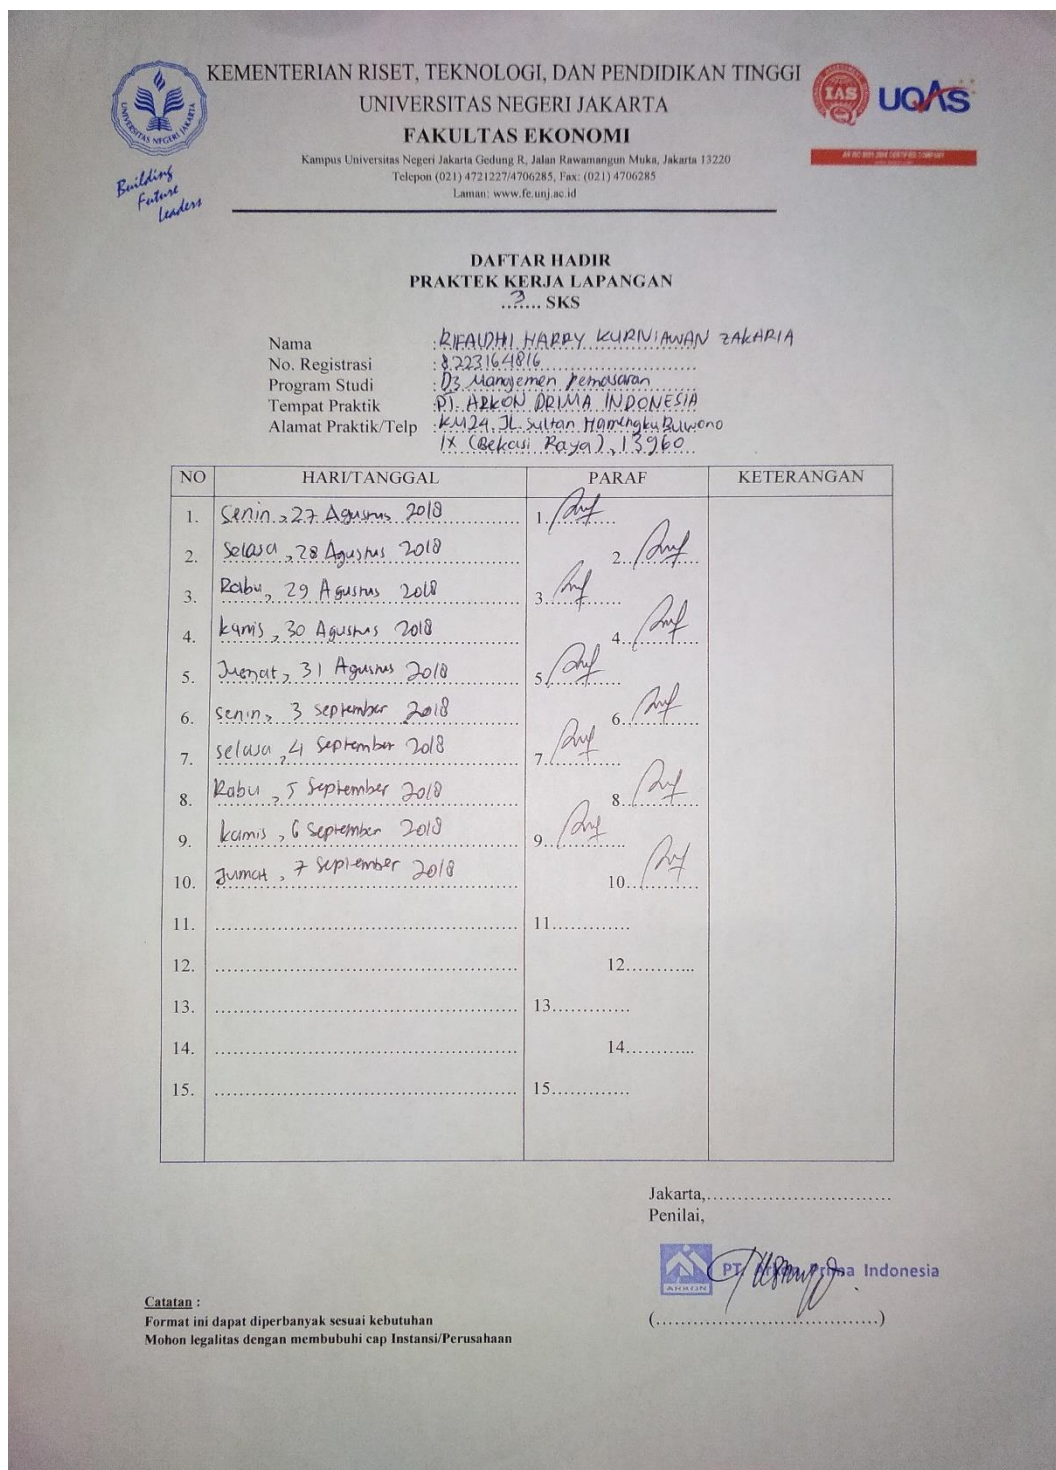 KEMENTERIAN RISET, TEKNOLOGI, DAN PENDIDIKAN TINGGI
UNIVERSITAS NEGERI JAKARTA
FAKULTAS EKONOMI
Kampus Universitas Negeri Jakarta Gedung R, Jalan Rawamangun Muka, Jakarta 13220
Telepon (021) 4721227/4706285, Fax: (021) 4706285
Laman: www.fe.unj.ac.id
UNIVERSITAS NEGERI JAKARTA
Building
Future
Leaders
IAS
UQAS
DAFTAR HADIR
PRAKTEK KERJA LAPANGAN
..?.... SKS
Nama : RIFALDHI HARRY KURNIAWAN ZAKARIA
No. Registrasi : 8223164816
Program Studi : D3 Manajemen Pemasaran
Tempat Praktik : PT. ARKON PRIMA INDONESIA
Alamat Praktik/Telp : KM24, JL. Sultan Hamengku Buwono
IX (Bekasi Raya), 13960
NO HARI/TANGGAL PARAF KETERANGAN
1. Senin, 27 Agustus 2018 1.
2. Selasa, 28 Agustus 2018 2.
3. Rabu, 29 Agustus 2018 3.
4. kamis, 30 Agustus 2018 4.
5. Jumat, 31 Agustus 2018 5.
6. Senin, 3 September 2018 6.
7. selasa, 4 September 2018 7.
8. Rabu, 5 September 2018 8.
9. kamis, 6 September 2018 9.
10. Jumat, 7 September 2018 10.
11. 11.
12. 12.
13. 13.
14. 14.
15. 15.
Jakarta,..............................
Penilai,
ARKON
PT. Arkon Prima Indonesia
(....................................)
Catatan :
Format ini dapat diperbanyak sesuai kebutuhan
Mohon legalitas dengan membubuhi cap Instansi/Perusahaan